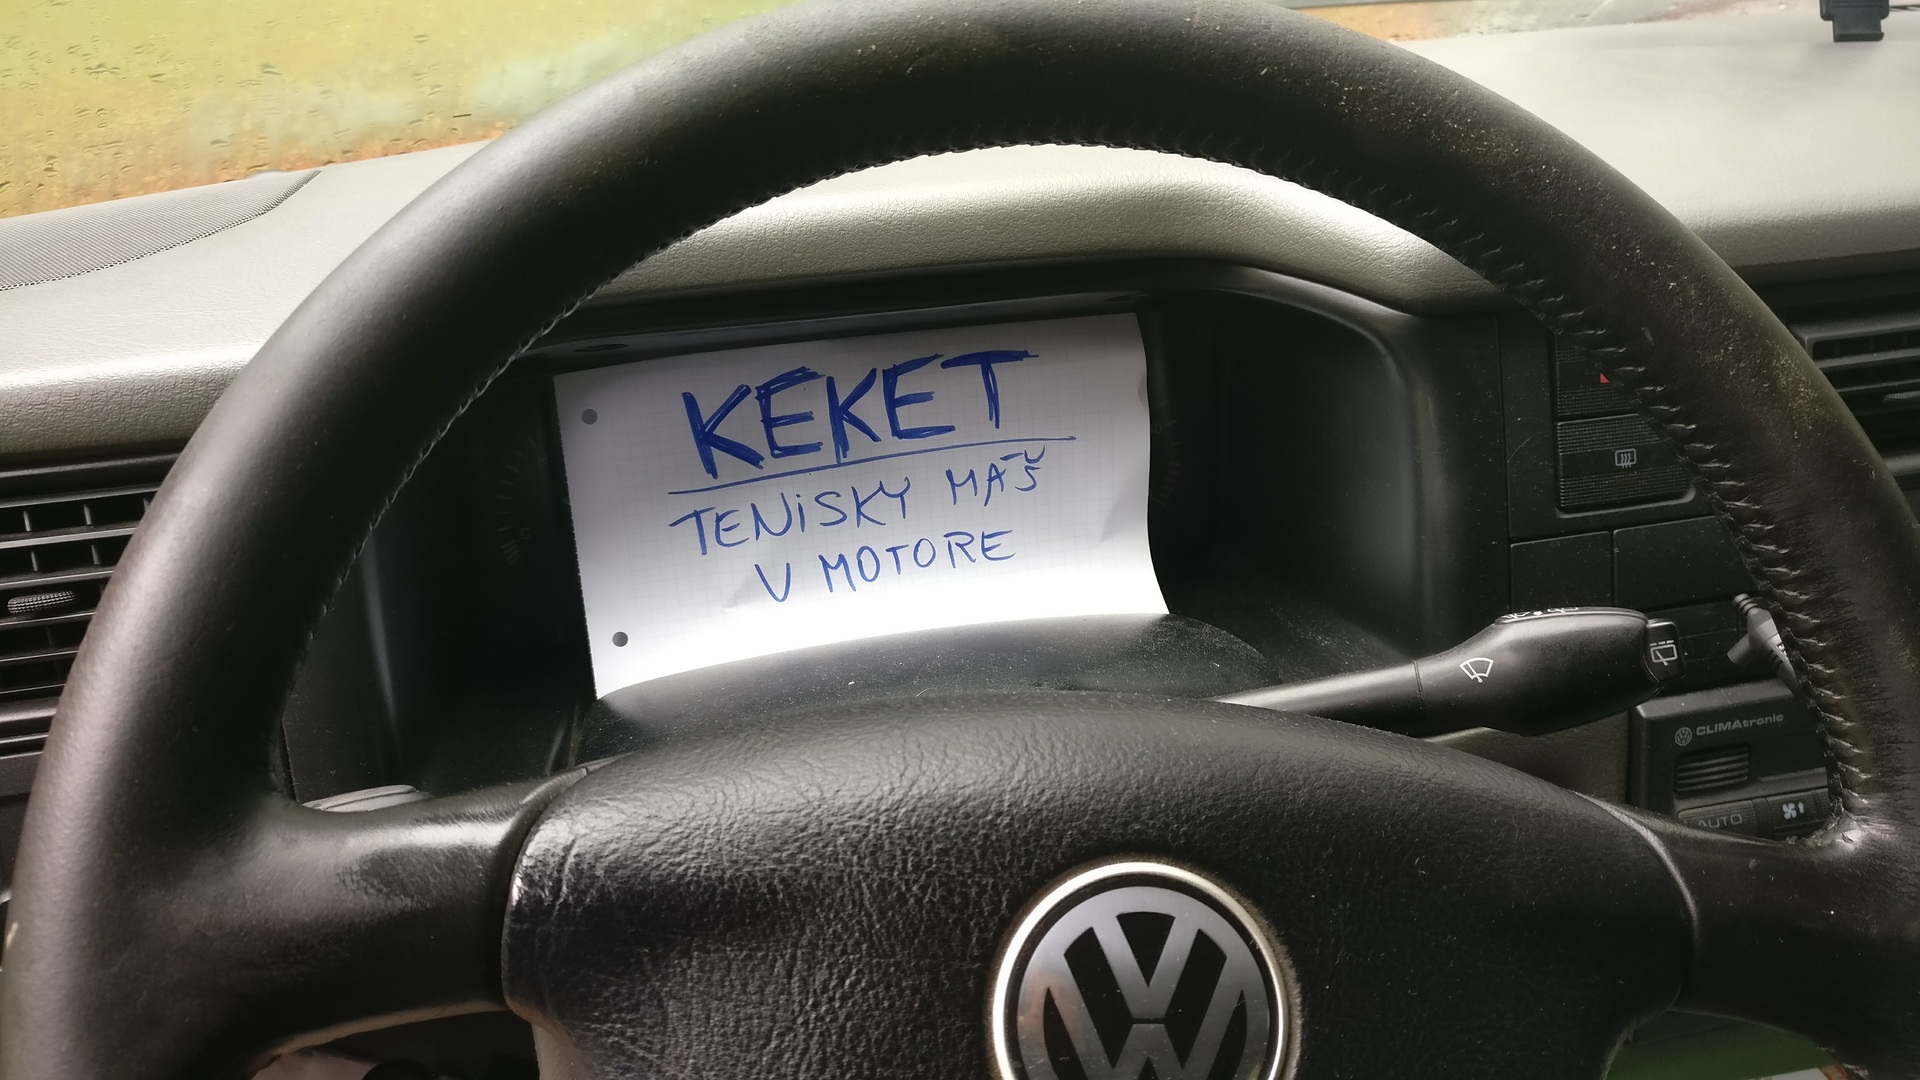 KEKET
TENiSKY MÁŠ
V MOTORE
CLIMAtronic
AUTO